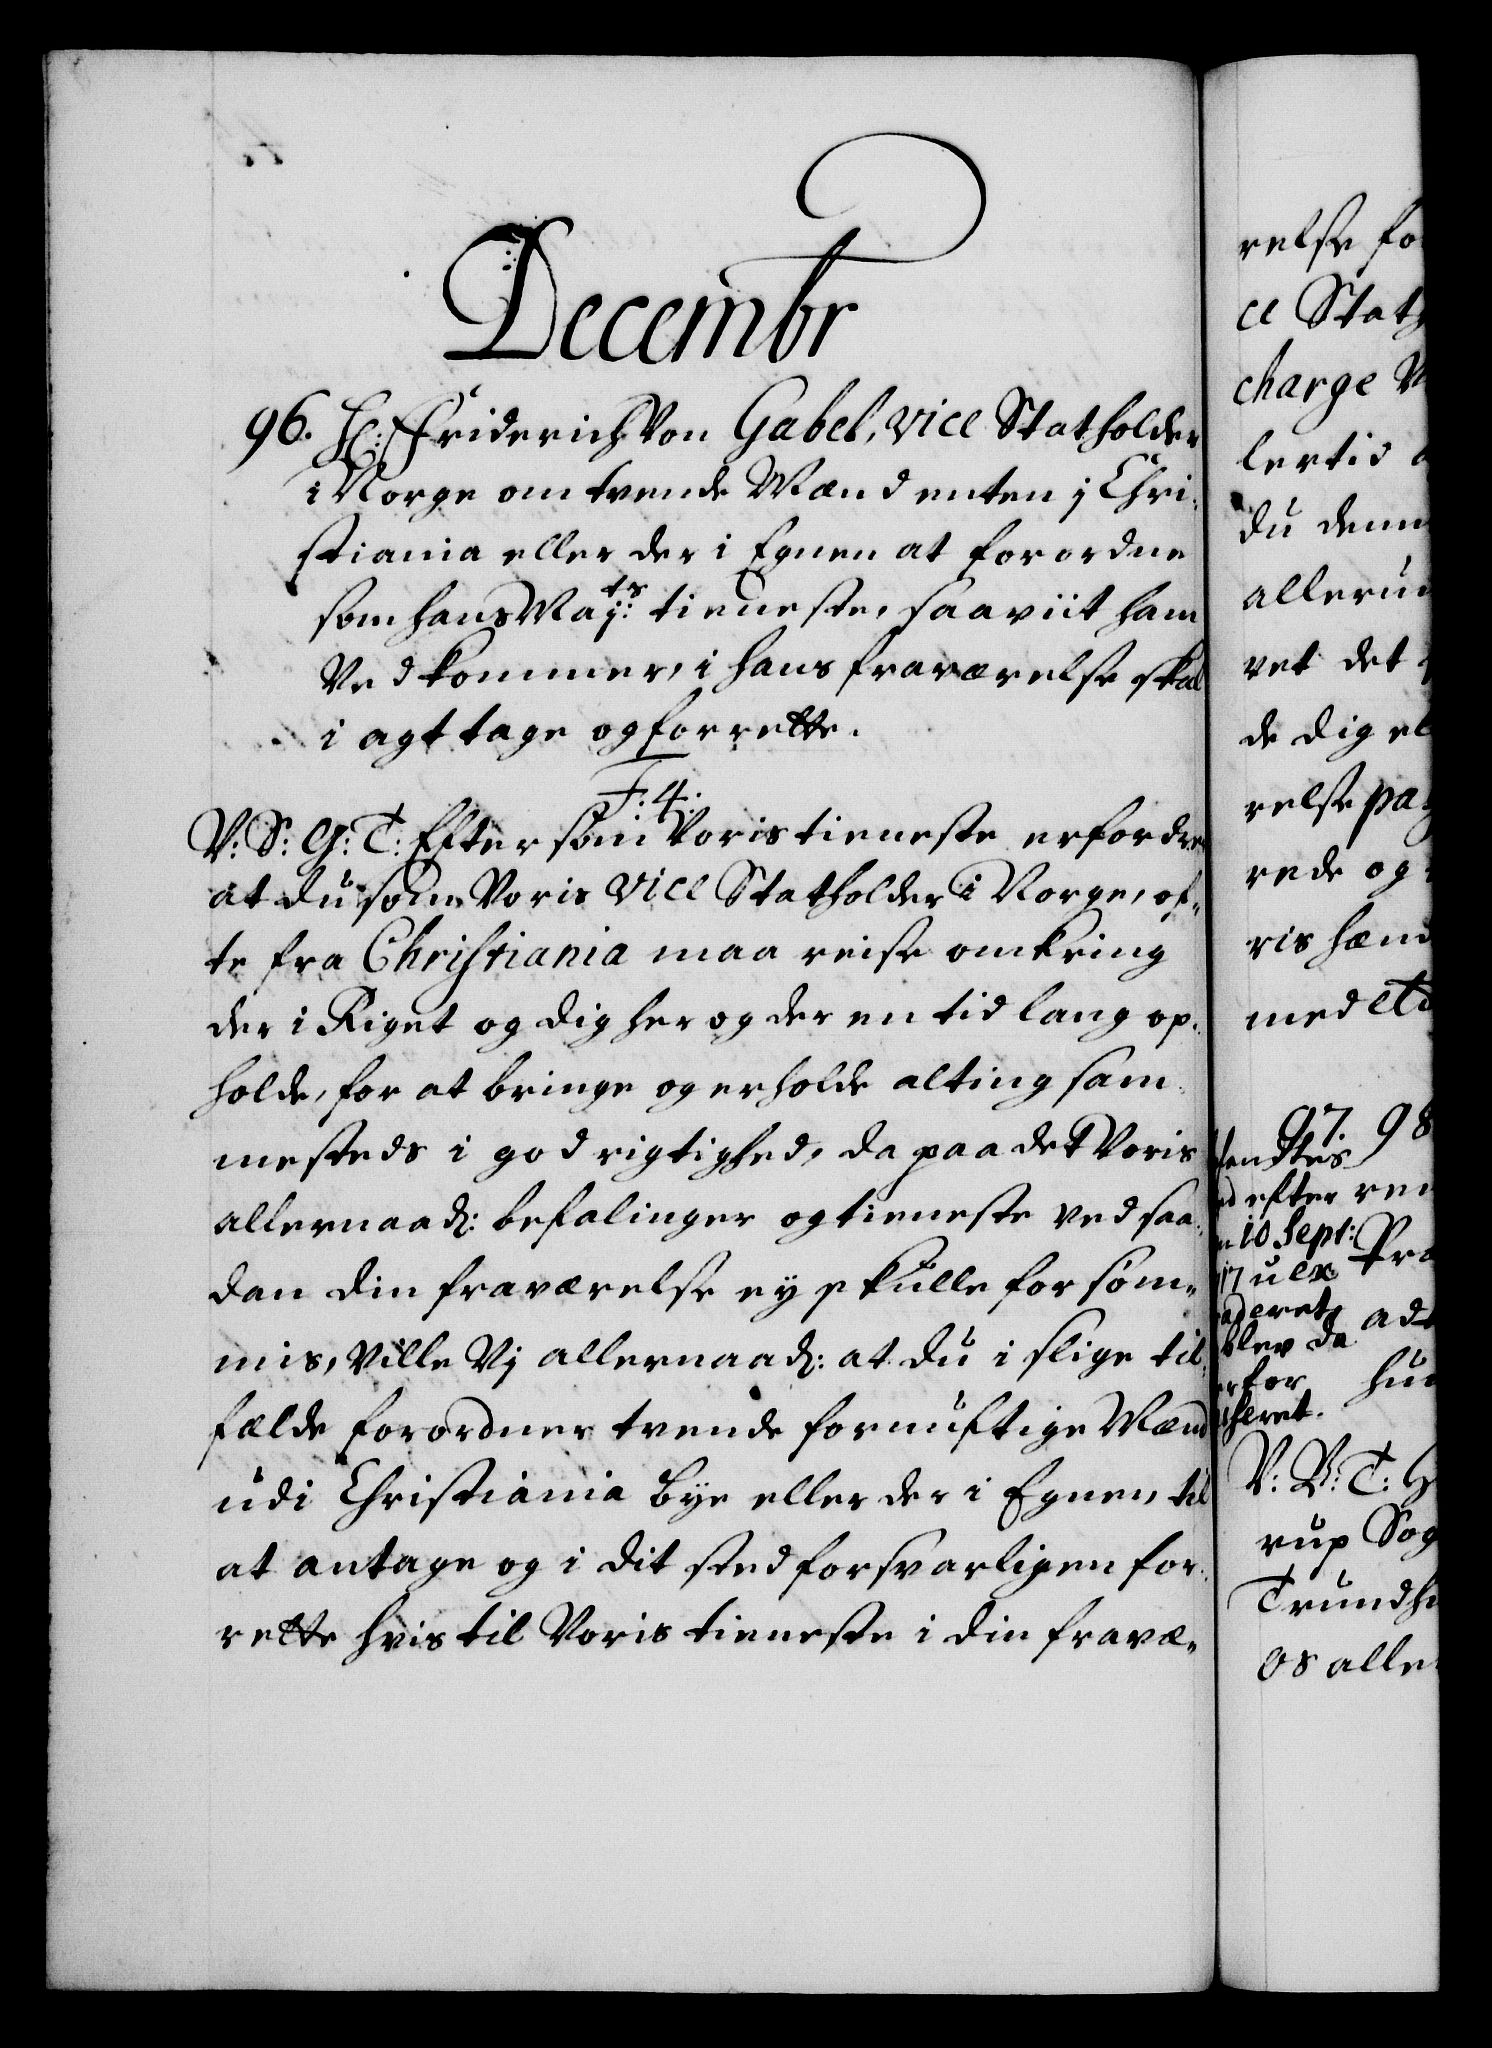 Decembr
96. H: Friderich Von Gabel, vice Statholder
i Norge om tvende Mænd enten j Chri-
stiania eller der i Egnen at forordne
som hans Maj:ts tieneste, saaviit ham
Vedkommer, i hans fraværelse skal
i agt tage og forrette.
F: 4.
V: S: G: T: Eftersom Voris tieneste erfordrer
at du som Voris vice Statholder i Norge, of-
te fra Christiania maa reise omkring
der i Riget og dig her og der en tid lang op-
holde, for at bringe og erholde alting sam-
mesteds i god rigtighed, da paa det Voris
allernaad: befalinger og tieneste ved saa-
dan din fraværelse ey skulle forsøm-
mis, Ville Vj allernaad: at du i slige til-
fælde forordner tvende fornuftige Mænd
udi Christiania Bye eller der i Egnen, til
at antage og i dit sted forsvarligen for-
rette hvis til Voris tieneste i din fravæ-
relse fo
ce Stath
charge V
lertid
du denn
allerun
vet det
de dig el
relse paa
rede og
ris hæn
med
97. 98
sendtes
efter ren
10 Sept: Pro
17
ad
blev da
for hun
V: V: T: G
rup Sog
Trundhi
os alle